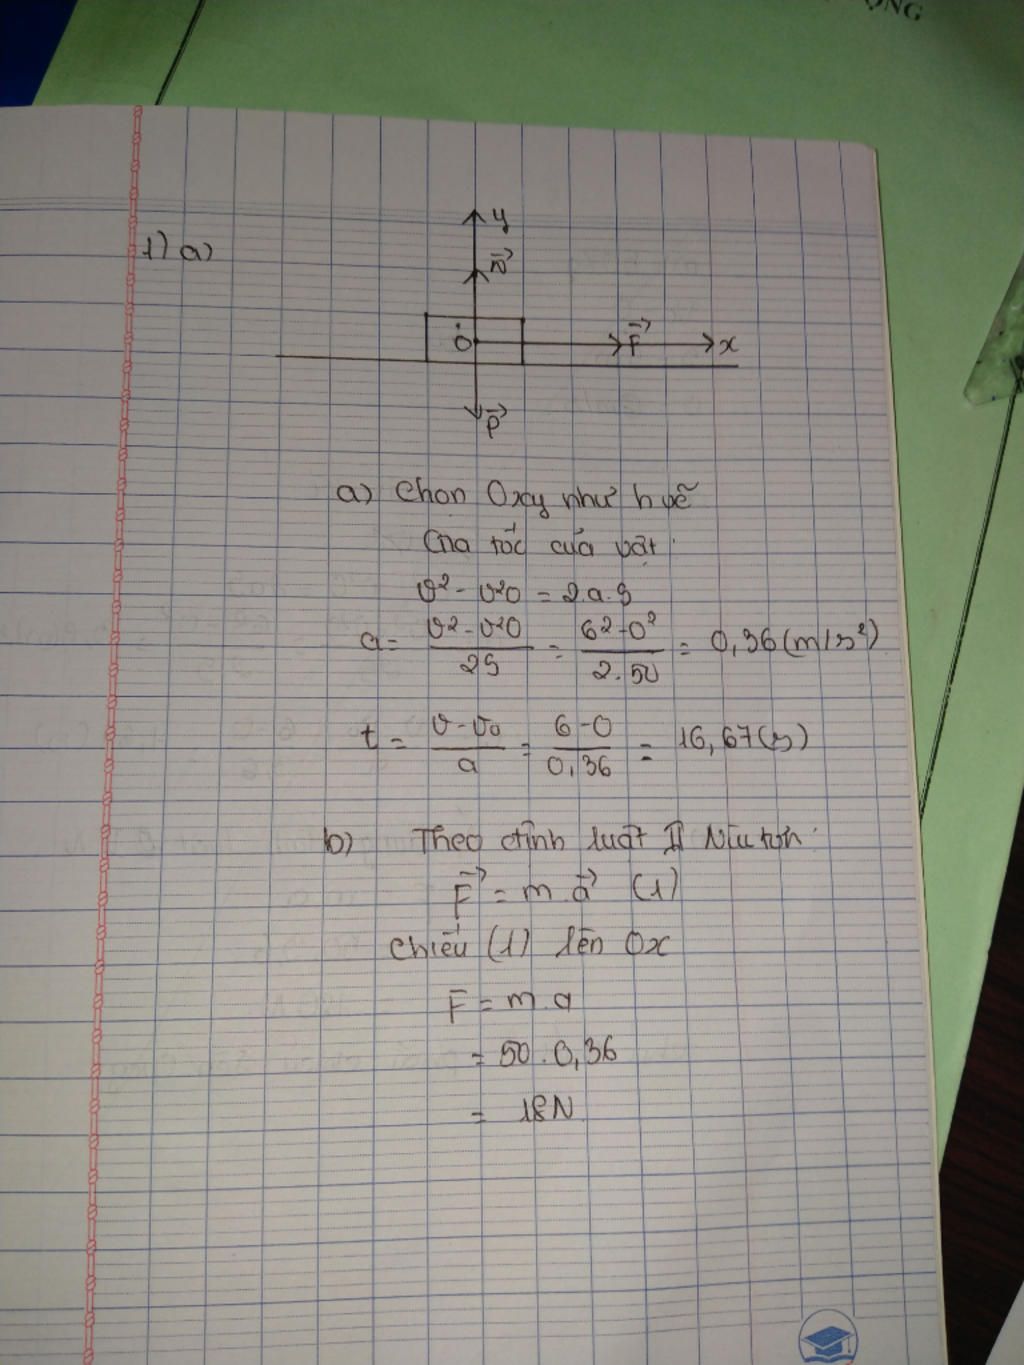 ỘNG
1) a)
y
N
O
F
x
P
a) Chọn Oxy như h vẽ
Gia tốc của vật:
v² - v²0 = 2.a.s
a = v² - v²0 / 2s = 6² - 0² / 2.50 = 0,36 (m/s²)
t = v - v₀ / a = 6 - 0 / 0,36 = 16,67 (s)
b) Theo định luật II Niu tơn:
F⃗ = m.a⃗ (1)
chiếu (1) lên Ox
F = m.a
= 50.0,36
= 18N